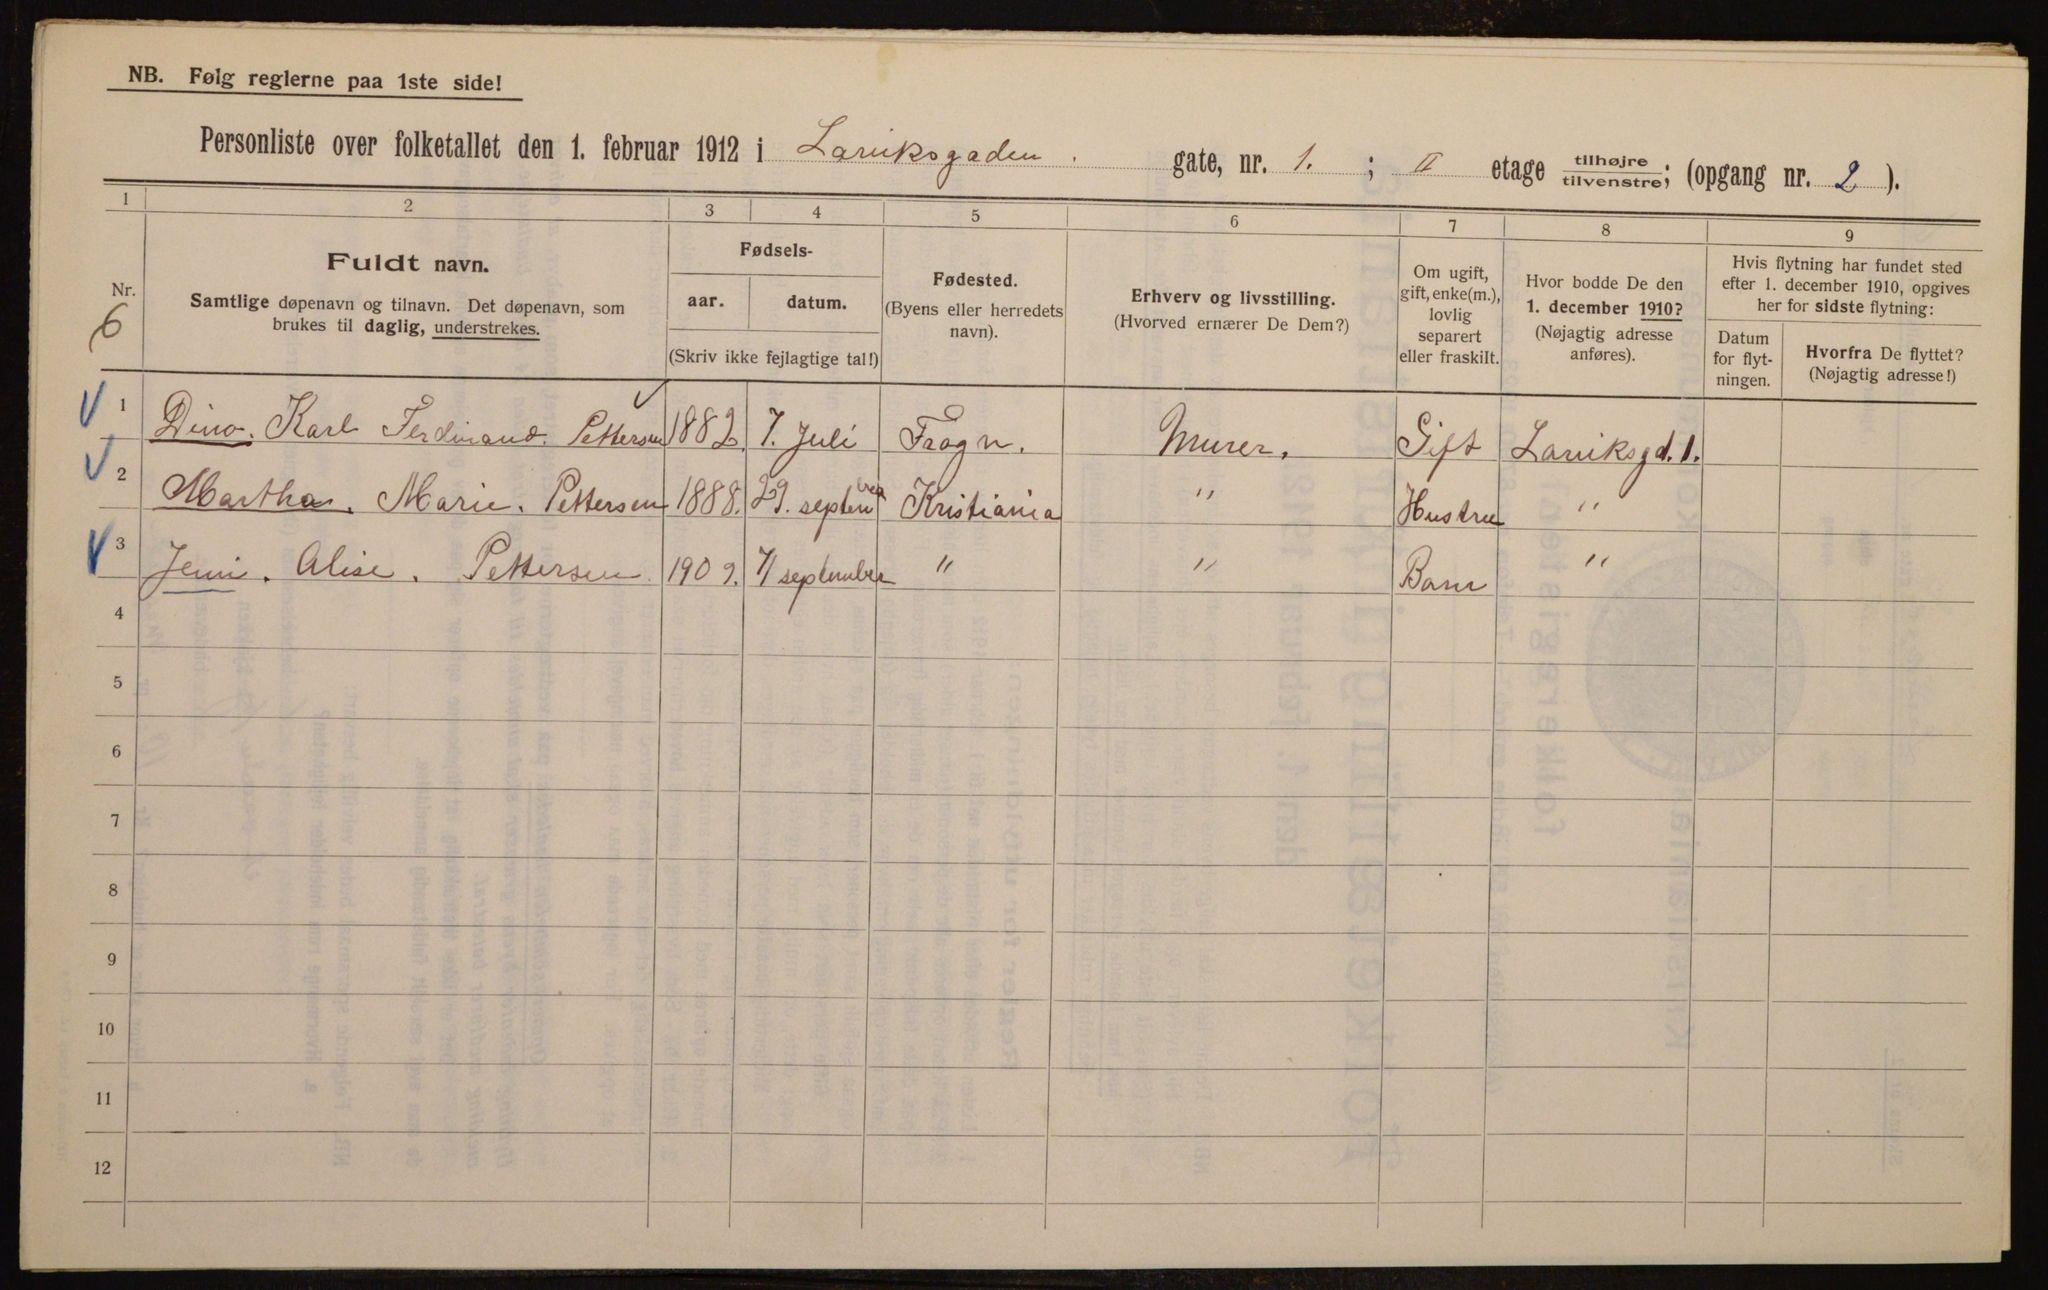 NB. Følg reglerne paa 1ste side!
Personliste over folketallet den 1. februar 1912 i Larviksgaden. gate, nr. 1. ; II etage tilhøjre/tilvenstre; (opgang nr. 2 ).
1 2 3 4 5 6 7 8 9
Nr. 6
Fuldt navn.
Samtlige døpenavn og tilnavn. Det døpenavn, som
brukes til daglig, understrekes.
Fødsels-
aar. datum.
(Skriv ikke fejlagtige tal!)
Fødested.
(Byens eller herredets
navn).
Erhverv og livsstilling.
(Hvorved ernærer De Dem?)
Om ugift,
gift, enke(m.),
lovlig
separert
eller fraskilt.
Hvor bodde De den
1. december 1910?
(Nøjagtig adresse
anføres).
Hvis flytning har fundet sted
efter 1. december 1910, opgives
her for sidste flytning:
Datum
for flyt-
ningen.
Hvorfra De flyttet?
(Nøjagtig adresse!)
1 Dino. Karl Ferdinand. Pettersen 1882. 7. Juli Frogn. Murer. Gift Larviksgd. 1.
2 Martha. Marie. Pettersen 1888. 29. september Kristiania " Hustru "
3 Jenni. Alise. Pettersen. 1909. 7/ september " " Barn "
4
5
6
7
8
9
10
11
12